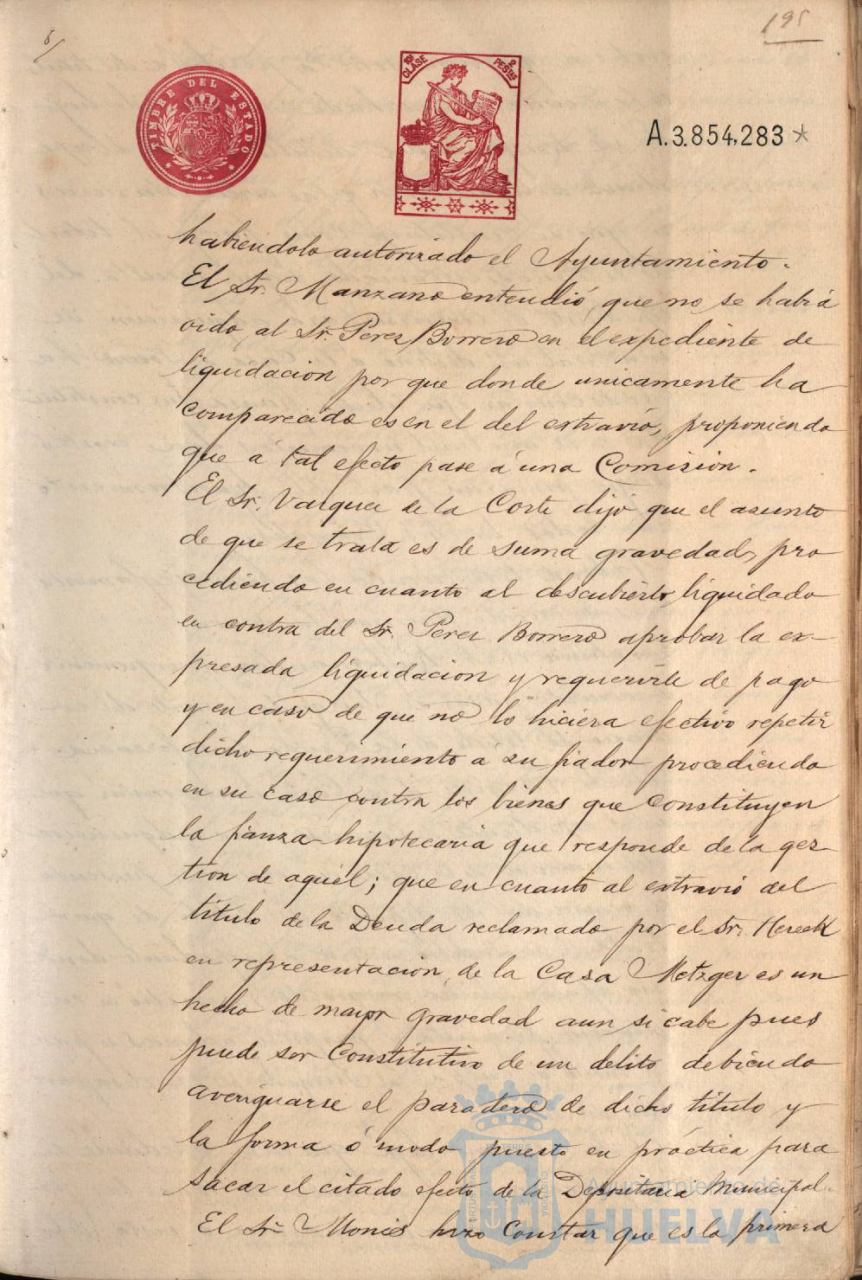 8/
195
TIMBRE DEL ESTADO
10ª CLASE 2 PESTAS
A.3.854,283 *
habiendolo autorizado el Ayuntamiento.
El Sr. Manzano entendió que no se habiá
oido al Sr. Perez Borrero en el expediente de
liquidacion por que donde unicamente ha
comparecido es en el del extravío, proponiendo
que á tal efecto pase á una Comision.
El Sr. Vazquez de la Corte dijó que el asunto
de que se trata es de suma gravedad, pro
cediendo en cuanto al descubierto liquidado
en contra del Sr. Perez Borrero aprobar la ex-
presada liquidacion y requerirle de pago
y en caso de que no lo hiciera efectivo repetir
dicho requerimiento á su fiador procediendo
en su caso contra los bienes que constituyen
la fianza hipotecaria que responde de la ges-
tion de aquel; que en cuanto al extravio del
título de la Deuda reclamado por el Sr.
en representacion de la Casa Metzger es un
hecho de mayor gravedad aun si cabe pues
puede ser constitutivo de un delito debiendo
averiguarse el paradero de dicho título y
la forma ó modo puesto en práctica para
sacar el citado efecto de la Depositaria Municipal.
El Sr. Monís hizo constar que es la primera
Ayuntamiento de
HUELVA